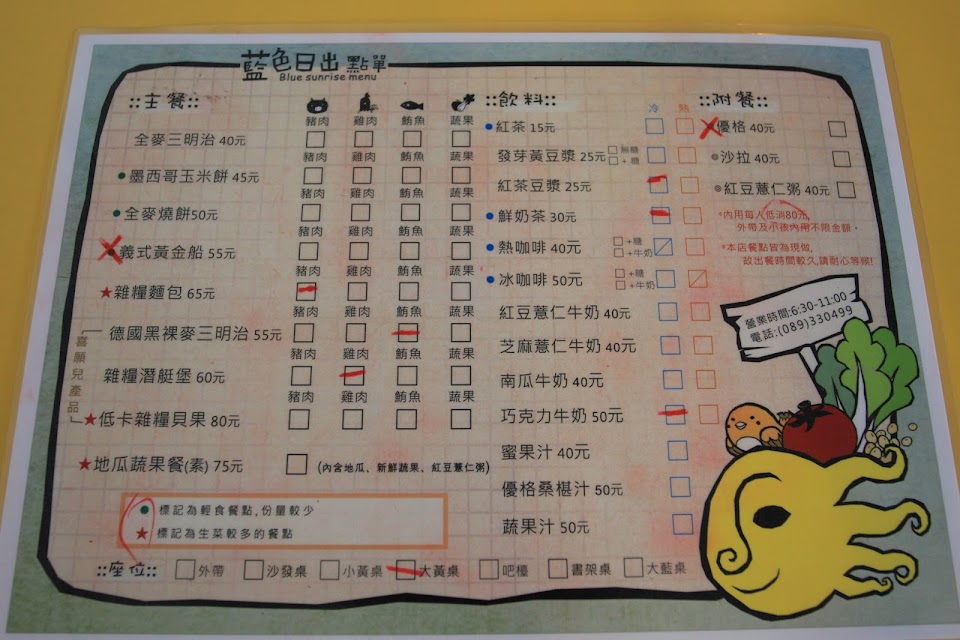 藍色日出 點單
Blue sunrise menu
::主餐::
豬肉 雞肉 鮪魚 蔬果
全麥三明治 40元
豬肉 雞肉 鮪魚 蔬果
●墨西哥玉米餅 45元
豬肉 雞肉 鮪魚 蔬果
●全麥燒餅50元
豬肉 雞肉 鮪魚 蔬果
●義式黃金船 55元
豬肉 雞肉 鮪魚 蔬果
★雜糧麵包 65元
豬肉 雞肉 鮪魚 蔬果
德國黑裸麥三明治 55元
豬肉 雞肉 鮪魚 蔬果
雜糧潛艇堡 60元
豬肉 雞肉 鮪魚 蔬果
★低卡雜糧貝果 80元
喜願兒產品
★地瓜蔬果餐(素) 75元 □ (內含地瓜、新鮮蔬果、紅豆薏仁粥)
● 標記為輕食餐點,份量較少
★ 標記為生菜較多的餐點
::飲料:: 冷 熱
●紅茶 15元
發芽黃豆漿 25元 □無糖
□+糖
紅茶豆漿 25元
●鮮奶茶 30元
●熱咖啡 40元 □+糖
□+牛奶
●冰咖啡 50元 □+糖
□+牛奶
紅豆薏仁牛奶 40元
芝麻薏仁牛奶 40元
南瓜牛奶 40元
巧克力牛奶 50元
蜜果汁 40元
優格桑椹汁 50元
蔬果汁 50元
::附餐::
優格 40元
沙拉 40元
紅豆薏仁粥 40元
*內用每人低消80元,
外帶及小孩內用不限金額。
*本店餐點皆為現做,
故出餐時間較久,請耐心等候!
營業時間:6:30-11:00
電話:(089)330499
::座位:: □外帶 □沙發桌 □小黃桌 □大黃桌 □吧檯 □書架桌 □大藍桌